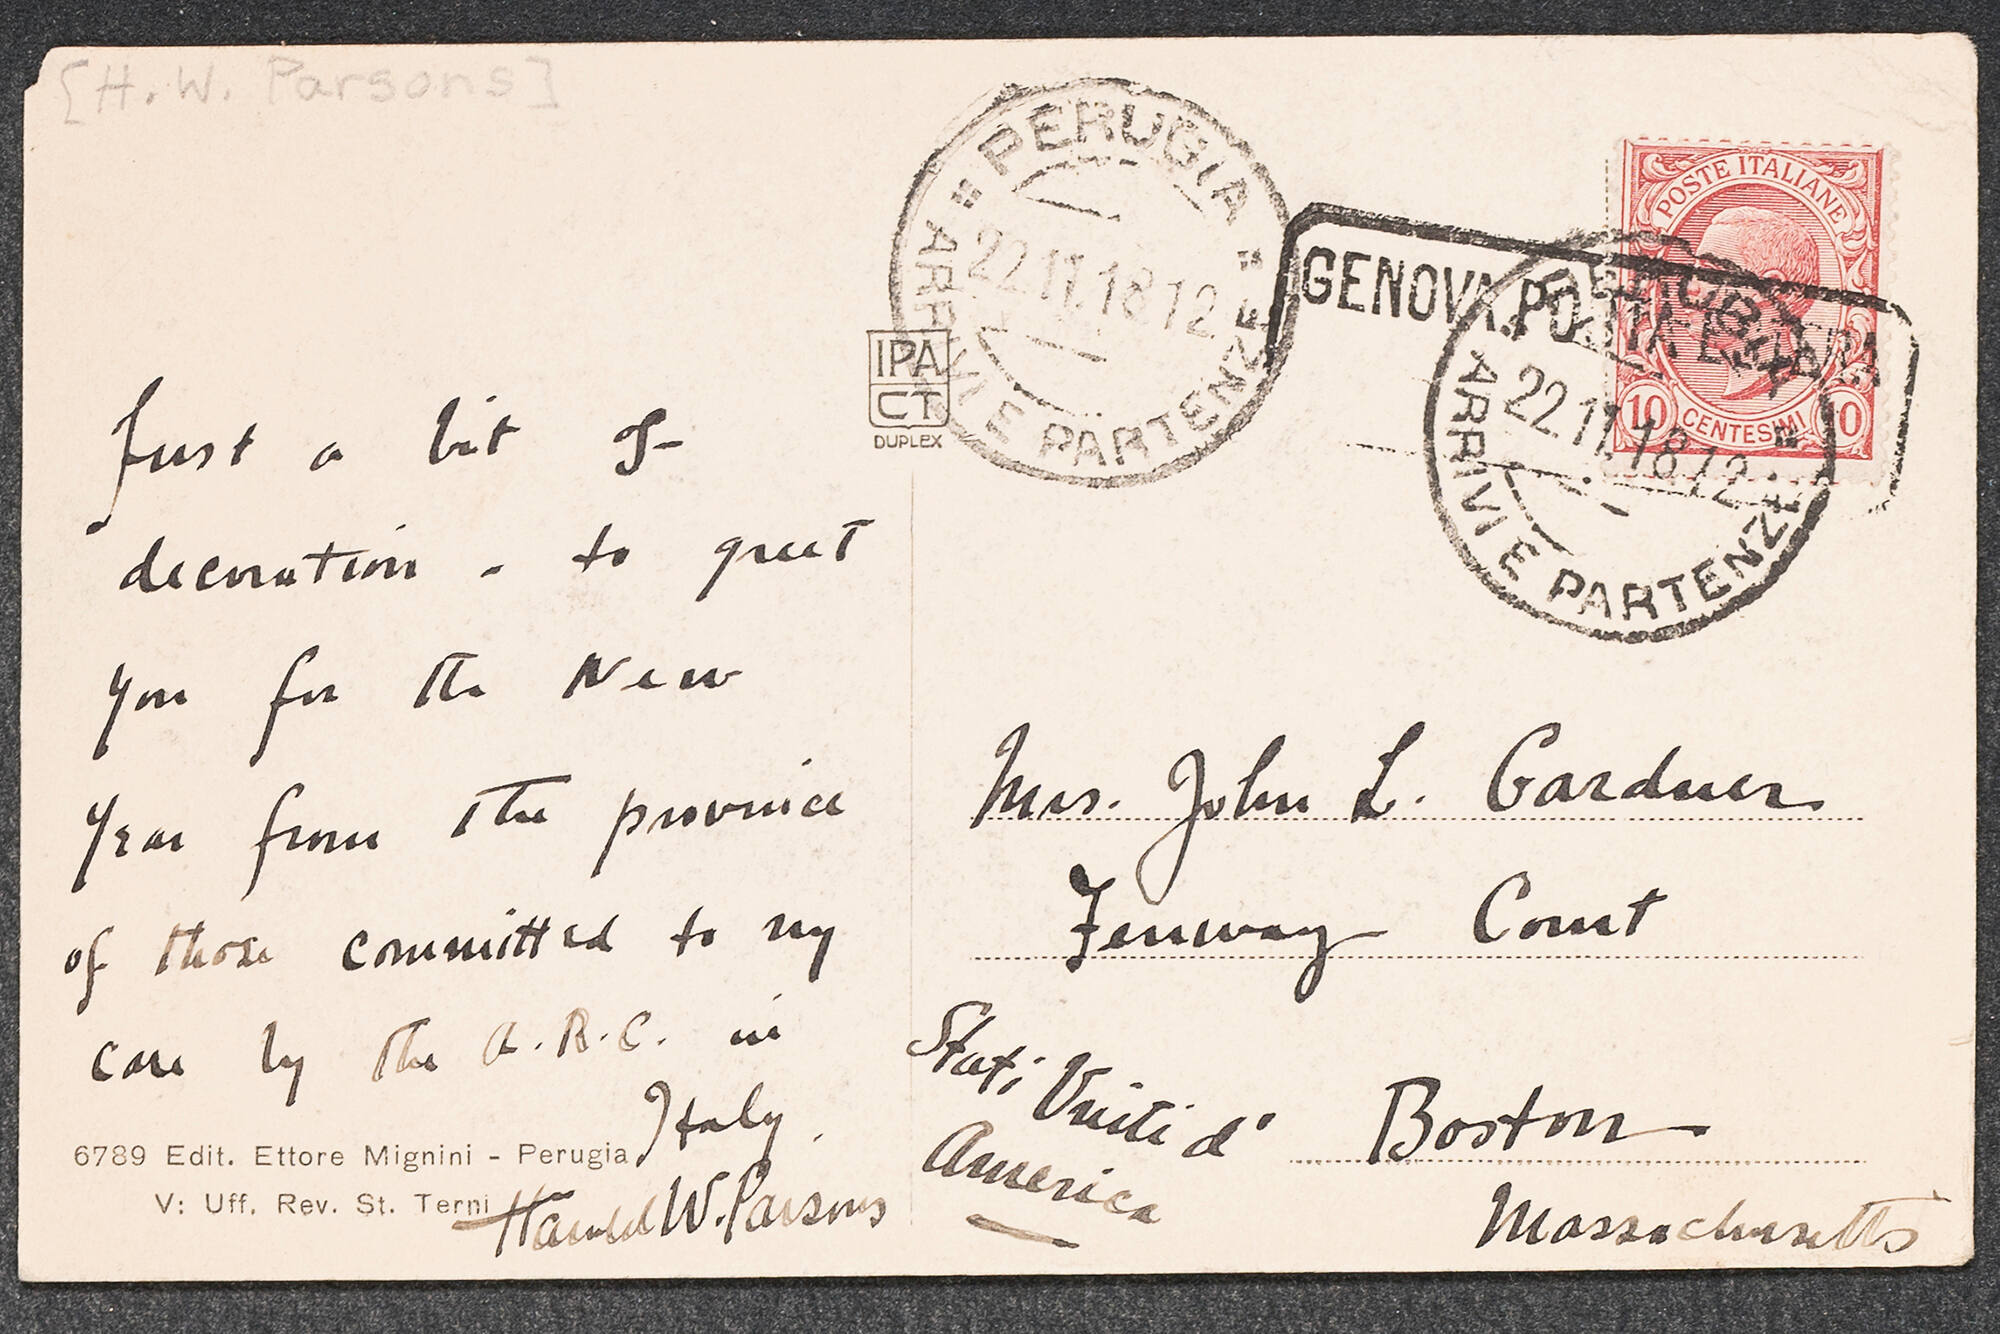 [H. W. Parsons]
Just a bit of
decoration - to greet
you for the New
Year from the province
of those committed to my
care by the A.R.C. in
Italy.
Harold W. Parsons
6789 Edit. Ettore Mignini - Perugia
V: Uff. Rev. St. Terni
IPA
CT
DUPLEX
PERUGIA
22.11.18.12
ARRIVI E PARTENZE
GENOVA.POSTA ESTERA
PERUGIA
22.11.18.12
ARRIVI E PARTENZE
POSTE ITALIANE
10 CENTESIMI 10
Mrs. John L. Gardner
Fenway Court
Boston
Massachusetts
Stati Uniti d'
America